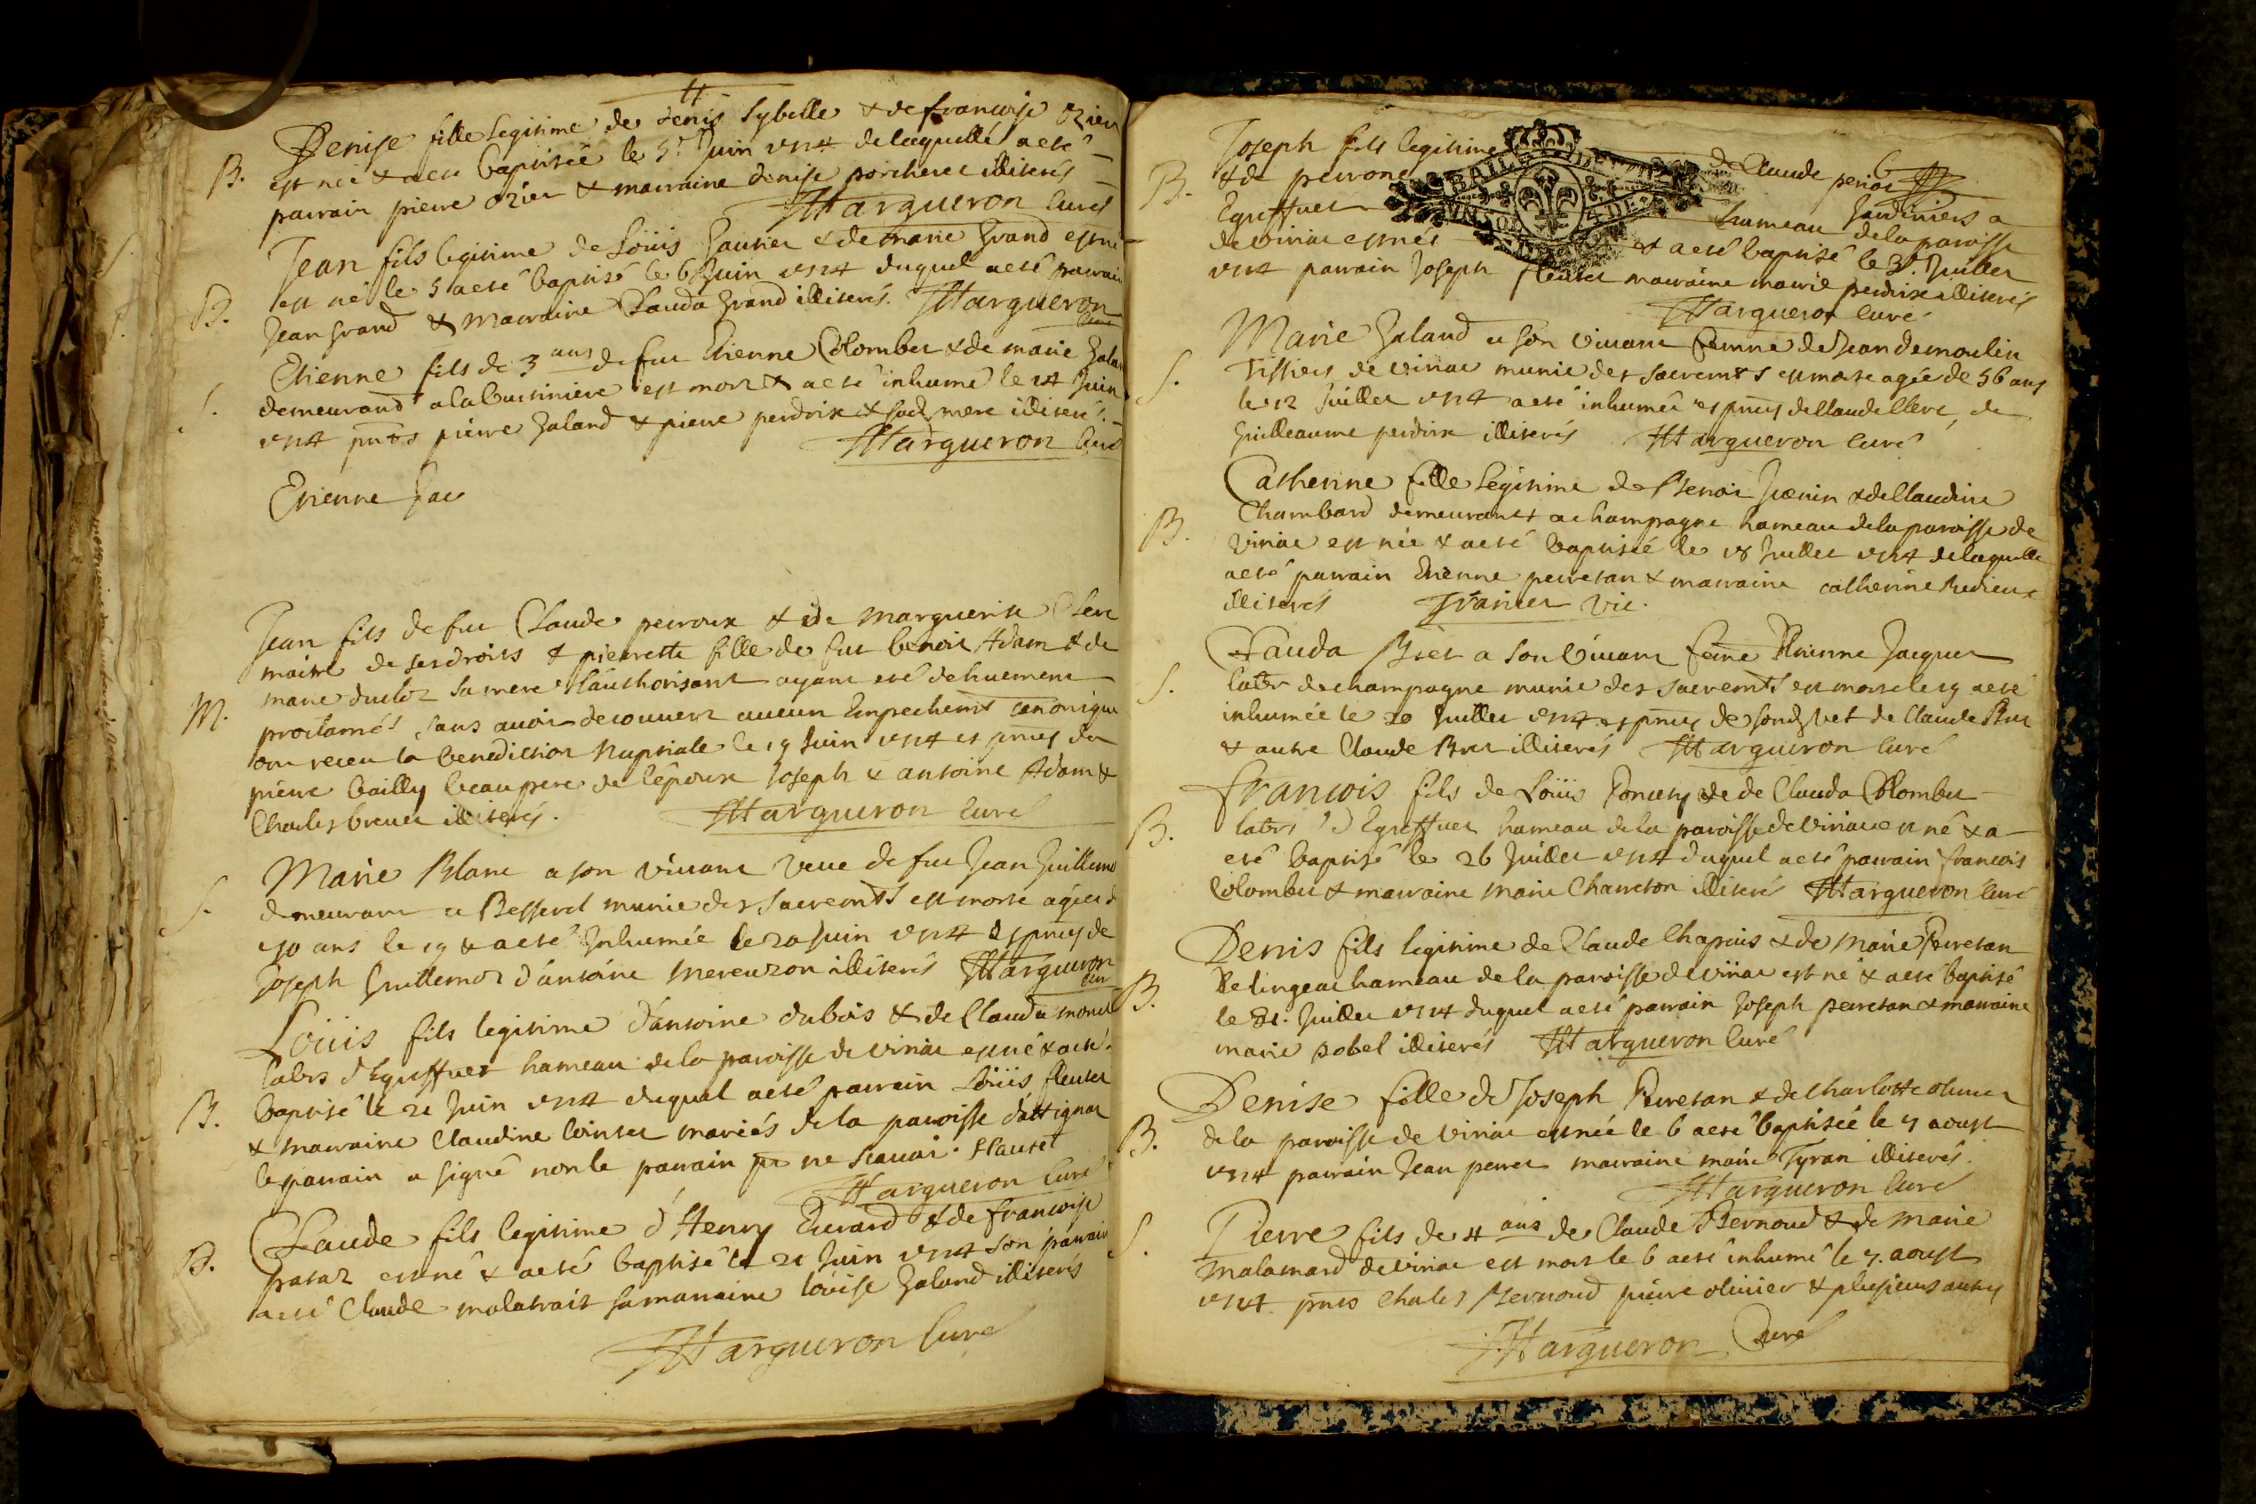 Denise fille legitime de denis Sybelle & de francoise ozier
B. est née & a eté baptisée le 5e Juin 1714 de laquelle a eté
parrain pierre ozier & marraine denise porcheret illiterés
Margueron Curé
Jean fils legitime de Loüis Gautier & de marie Grand est né
B. est né le 5 a eté baptisé le 6 Juin 1714 duquel a eté parrain
Jean Grand & marraine Clauda Grand illiterés. Margueron
Curé
Etienne fils de 3 ans de feu Etienne Colombet & de marie
S. demeurand a la est mort & a eté inhumé le 14 Juin
1714 pnts pierre Galand & pierre perdrix & sad mere illiterés
Margueron Curé
Etienne Jac
Jean fils de feu Claude perroux & de marguerite Clerc
maitre de ses droits & pierrette fille de feu benoit Adam & de
M. marie duclos sa mere l'authorisant ayant eté dehuement
proclamés, sans avoir decouvert aucun Empechemt canonique
ont receu la benediction Nuptiale le 19 Juin 1714 es pnces de
pierre bailly beaupere de l'epoux Joseph & antoine Adam &
Charles illiterés. Margueron Curé
Marie Blanc a son vivant veue de feu Jean Guillemot
S. demeurant a Besserel munie des Sacremts est morte agée d
ans le 19 & a eté Inhumée le 20 Juin 1714 es pnces de
Joseph Guillemot d'antoine illiterés Margueron
Curé
Loüis fils legitime d'antoine dubois & de Clauda
labrs d'Egreffuet hameau de la paroisse de viriat est né & a eté
B. baptisé le 21 Juin 1714 duquel a eté parrain Loüis fleutet
& marraine Claudine mariés de la paroisse d'attignat
le parrain a signé non le parrain pr ne scavoir. Flautet
Margueron Curé
Claude fils legitime d'Henry Evrard & de francoise
B. est né & a eté baptisé le 21 Juin 1714 son parrain
a eté Claude malatrait sa marraine loüise Galand illiterés
Margueron Curé
6
Joseph fils legitime de Claude
B. & de perrone Jardiniers a
Egreffuet hameau de la paroisse
de viriat est né & a eté baptisé le 3e Juillet
1714 parrain Joseph fleutet marraine marie perdrix illiterés
Margueron Curé
Marie Galand a son vivant femme de Jean demoulin
S. Tissiers de viriat munie des sacremts est morte agée de 56 ans
le 12 Juillet 1714 a eté inhumée es pnces de Claude Clerc, de
Guilleaume perdrix illiterés Margueron Curé
Catherine fille legitime de Benoit & de Claudine
Chambard demeurants a champagne hameau de la paroisse de
B. viriat est née & a eté baptisée le 18 Juillet 1714 de laquelle
a eté parrain Etienne perretan & marraine catherine
illiterés vic.
Clauda Bret a son vivant feme Etienne Jacquet
S. labr de champagne munie des sacremts est morte le 19 a eté
inhumée le 20 Juillet 1714 es pnces de sond vet de Claude Bret
& autre Claude Bret illiterés Margueron Curé
francois fils de Loüis & de Clauda Colombet
B. labrs d'Egreffuet hameau de la paroisse de viriat est né & a
eté baptisé le 26 Juillet 1714 duquel a eté parrain francois
Colombet & marraine marie Chanelon illiterés Margueron Curé
Denis fils legitime de Claude Chapuis & de marie Perretan
B. hameau de la paroisse de viriat est né & a eté baptisé
le 31. Juillet 1714 duquel a eté parrain Joseph perretan & marraine
marie pobel illiterés Margueron Curé
Denise fille de Joseph Perretan & de Charlotte olivier
B. de la paroisse de viriat est née le 6 a eté baptisée le 7 aoust
1714 parrain Jean perret marraine marie Tyran illiterés.
Margueron Curé
Pierre fils de 4 ans de Claude Bernoud & de marie
S. malamard de viriat est mort le 6 a eté inhumé le 7. aoust
1714 pnts Charles Bernoud pierre olivier & plusieurs autres
Margueron Curé